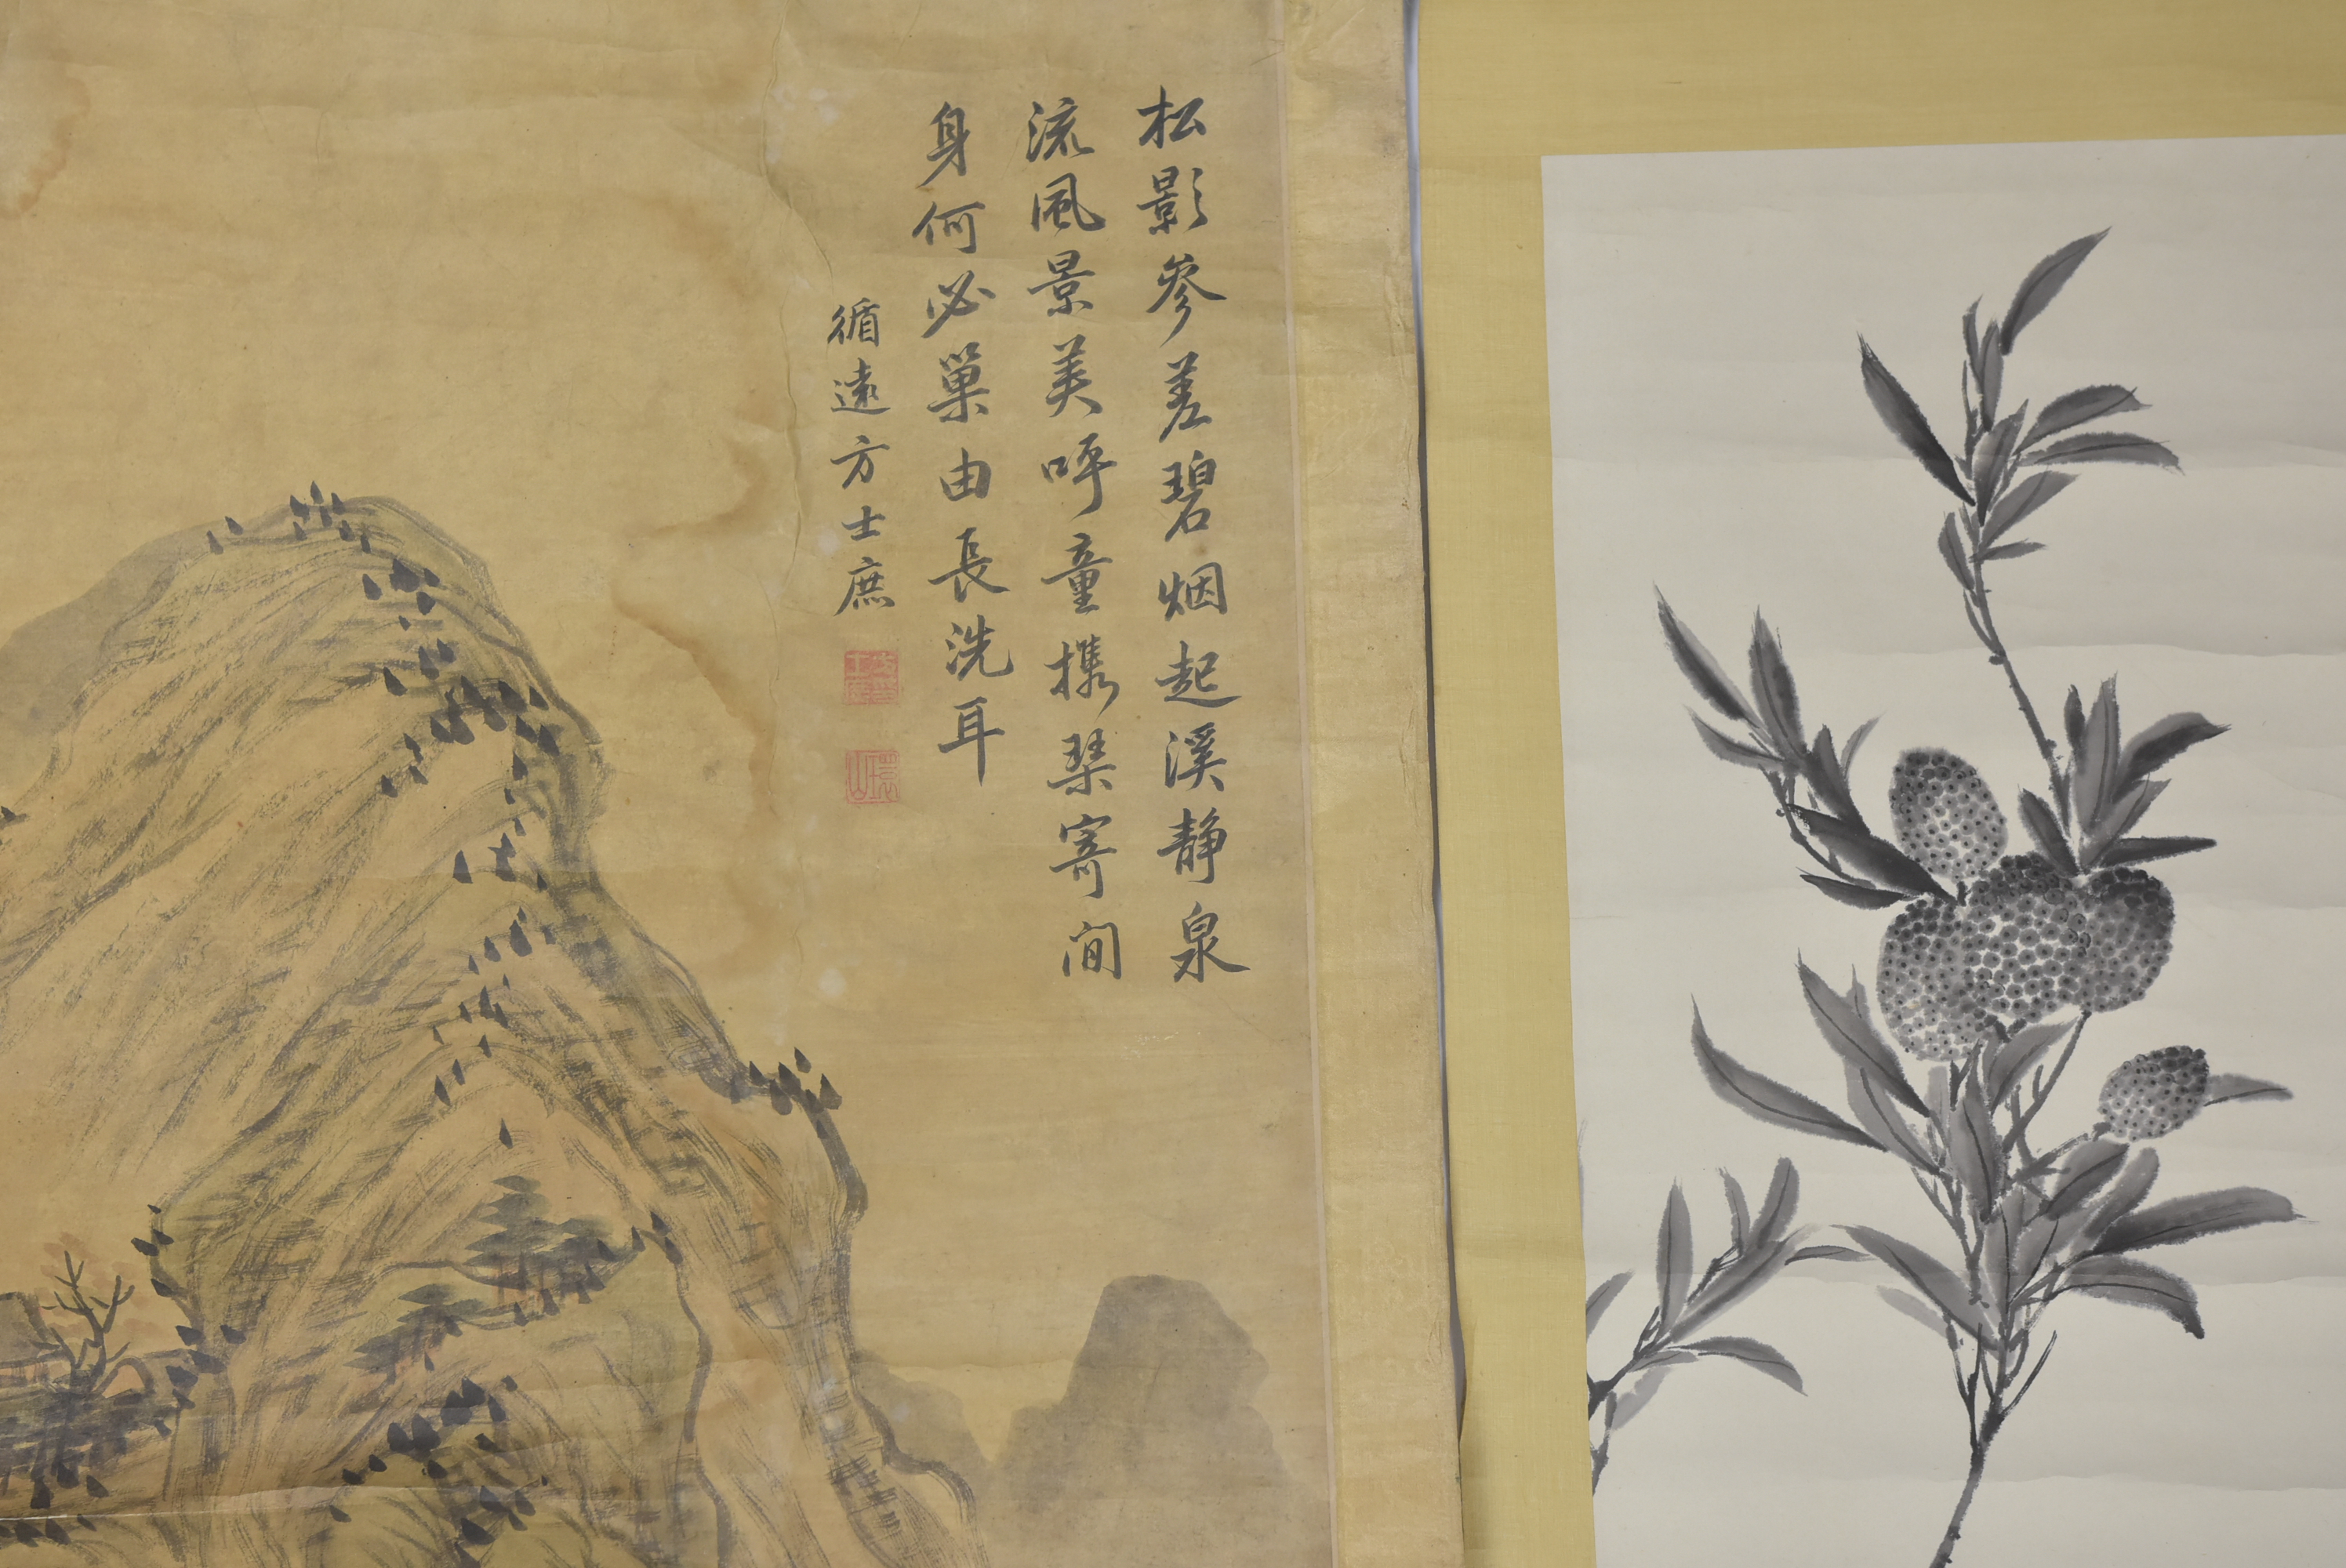 松影參差碧烟起溪静泉
流風景美呼童攜琴寄间
身何必巢由長洗耳
循遠方士庶
環山